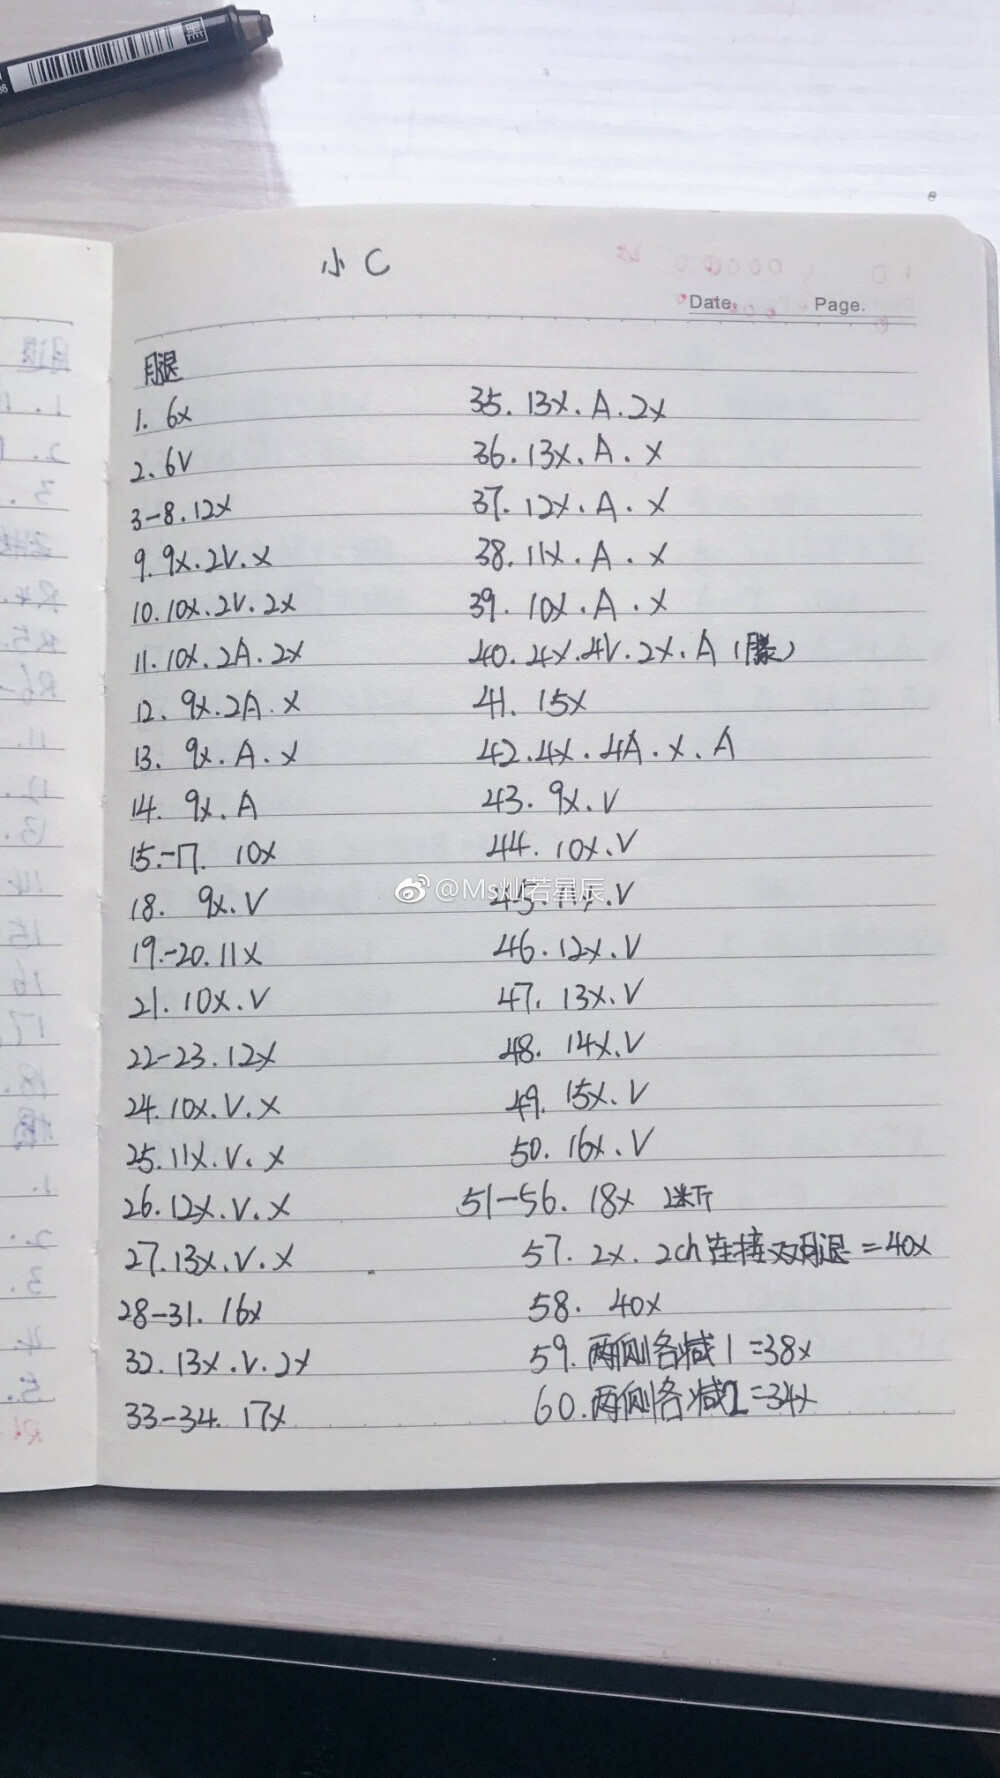 黑
小 C
Date.
Page.
腿
1. 6x
2. 6V
3-8. 12x
9. 9x. 2V. x
10. 10x. 2V. 2x
11. 10x. 2A. 2x
12. 9x. 2A. x
13. 9x. A. x
14. 9x. A
15.-17. 10x
18. 9x. V
19.-20. 11x
21. 10x. V
22-23. 12x
24. 10x. V. x
25. 11x. V. x
26. 12x. V. x
27. 13x. V. x
28-31. 16x
32. 13x. V. 2x
33-34. 17x
35. 13x. A. 2x
36. 13x. A. x
37. 12x. A. x
38. 11x. A. x
39. 10x. A. x
40. 4x. 4V. 2x. A (膝)
41. 15x
42. 4x. 4A. x. A
43. 9x. V
44. 10x. V
45. 11x. V
46. 12x. V
47. 13x. V
48. 14x. V
49. 15x. V
50. 16x. V
51-56. 18x 断
57. 2x. 2ch 连接双腿 = 40x
58. 40x
59. 两侧各减1 = 38x
60. 两侧各减2 = 34x
@Ms灿若星辰